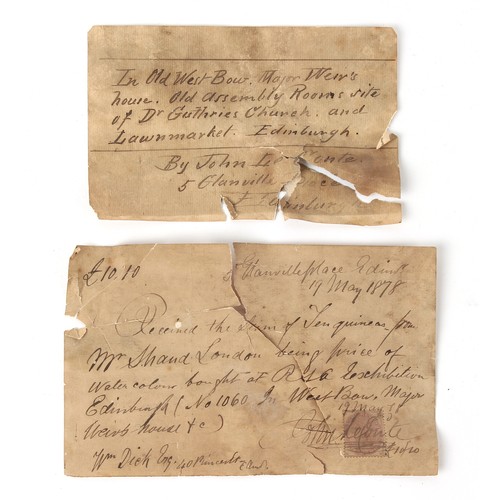 In Old West Bow. Major Weir's
house. Old Assembly Rooms site
of Dr Guthries Church. and
Lawnmarket. Edinburgh.
By John Le Conte
5 Glanville Place
Edinburgh
£10.10
5 Glanville place Edinh
19 May 1878
Received the sum of Ten guineas from
Mr Shand London being price of
water colour bought at RSA Exhibition
Edinburgh (No 1060. In West Bow. Major
Weirs house &c)
19 May 78
John Le Conte
£10/10
Wm Dick Esq. 40 Princes St Edinh